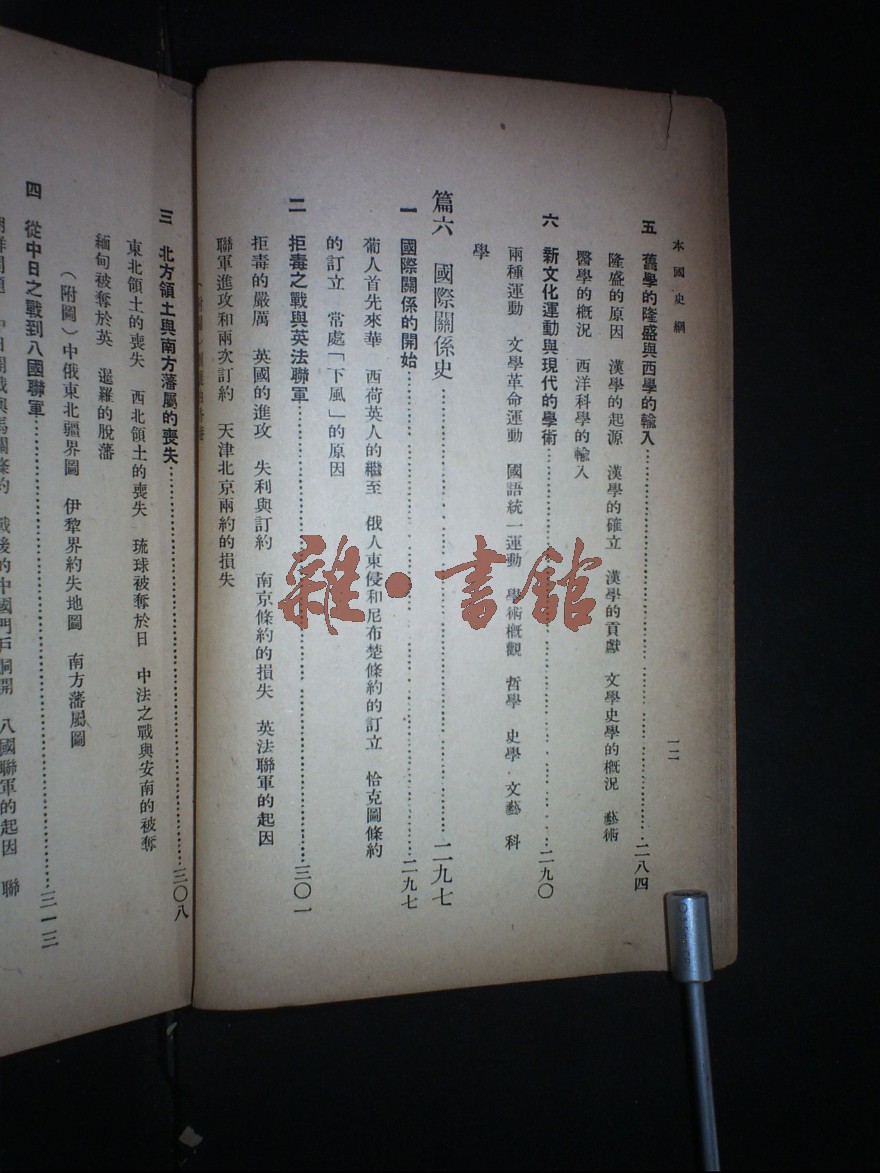 本國史綱
一二
五 舊學的隆盛與西學的輸入……二八四
隆盛的原因 漢學的起源 漢學的確立 漢學的貢獻 文學史學的概況 藝術
醫學的概況 西洋科學的輸入
六 新文化運動與現代的學術……二九〇
兩種運動 文學革命運動 國語統一運動 學術概觀 哲學 史學 文藝 科
學
篇六 國際關係史……二九七
一 國際關係的開始……二九七
葡人首先來華 西荷英人的繼至 俄人東侵和尼布楚條約的訂立 恰克圖條約
的訂立 常處「下風」的原因
二 拒毒之戰與英法聯軍……三〇一
拒毒的嚴厲 英國的進攻 失利與訂約 南京條約的損失 英法聯軍的起因
聯軍進攻和兩次訂約 天津北京兩約的損失
三 北方領土與南方藩屬的喪失……三〇八
東北領土的喪失 西北領土的喪失 琉球被奪於日 中法之戰與安南的被奪
緬甸被奪於英 暹羅的脫藩
(附圖)中俄東北疆界圖 伊犂界約失地圖 南方藩屬圖
四 從中日之戰到八國聯軍……三一三
戰後的中國門戶洞開 八國聯軍的起因 聯
雜·書館